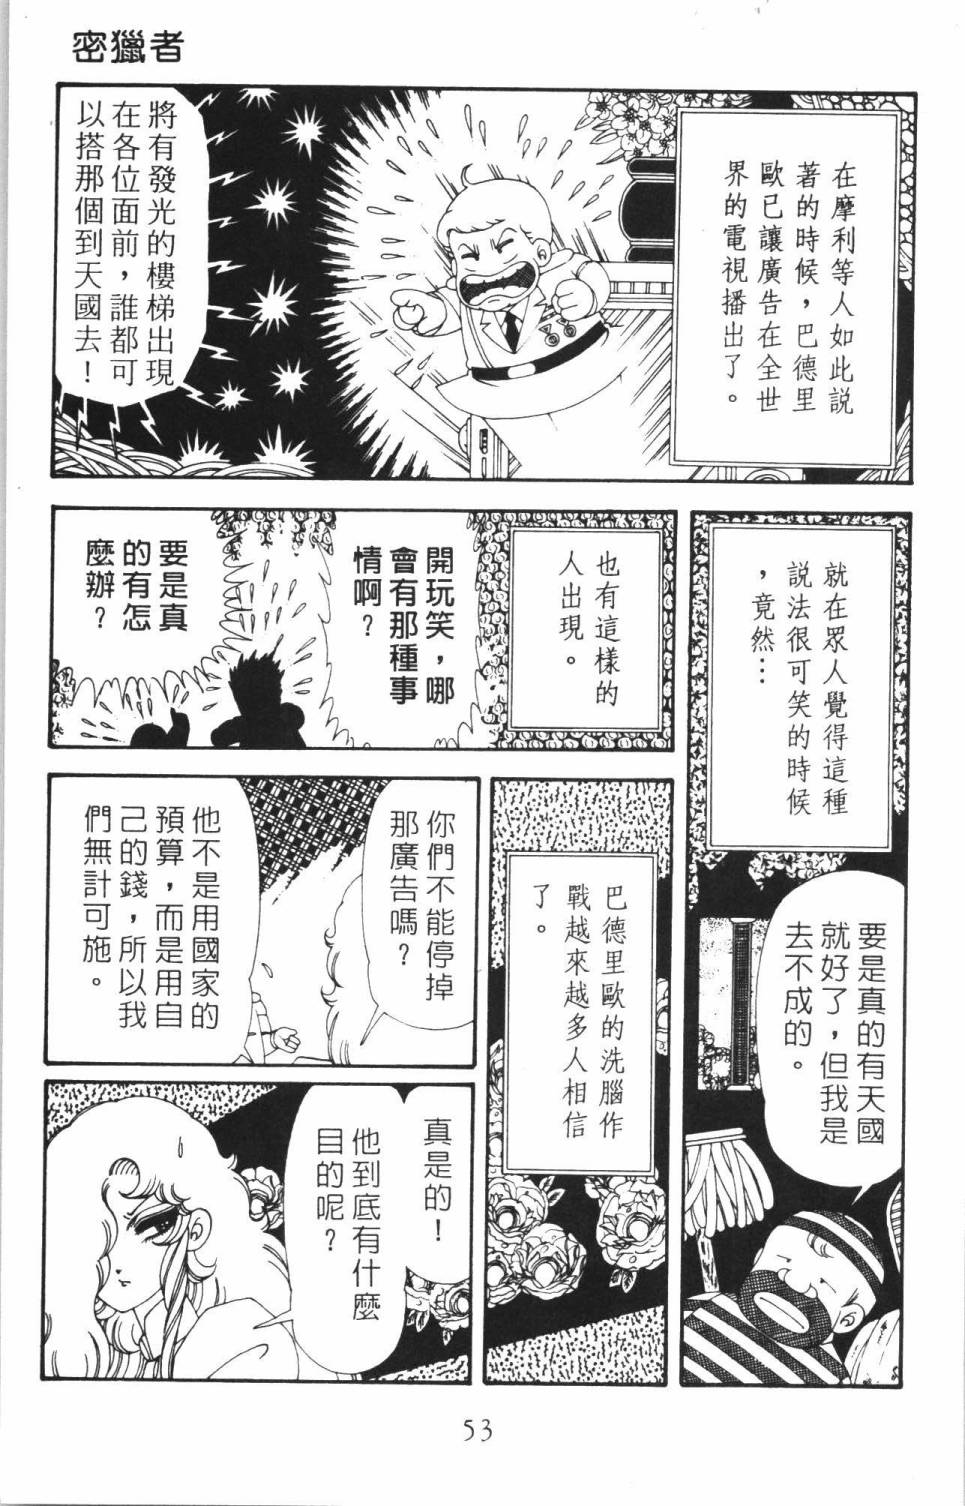 密獵者
在摩利等人如此説
著的時候，巴德里
歐已讓廣告在全世
界的電視播出了。
將有發光的樓梯出現
在各位面前，誰都可
以搭那個到天國去！
就在眾人覺得這種
説法很可笑的時候
，竟然…
也有這樣的
人出現。
開玩笑，哪
會有那種事
情啊？
要是真
的有怎
麼辦？
要是真的有天國
就好了，但我是
去不成的。
巴德里歐的洗腦作
戰越來越多人相信
了。
你們不能停掉
那廣告嗎？
他不是用國家的
預算，而是用自
己的錢，所以我
們無計可施。
真是的！
他到底有什麼
目的呢？
53